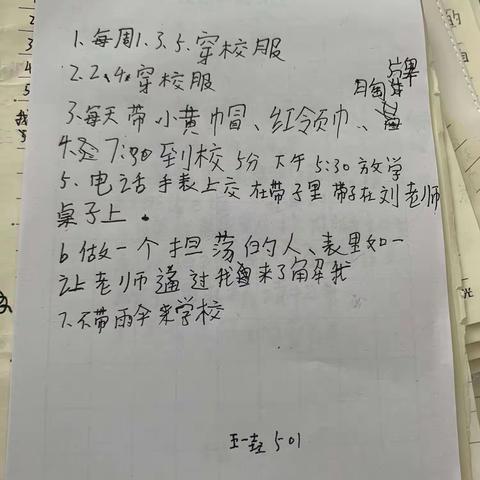 1.每周1.3.5.穿校服
2.2.4.穿校服
3.每天带小黄巾冒、红领巾、
4.7:30到校5分下午5:30放学
5.电话手表上交在带子里带子在刘老师
桌子上.
6做一个担荡的人、表里如一
让老师通过我来了角军我
7.不带雨伞来学校
501